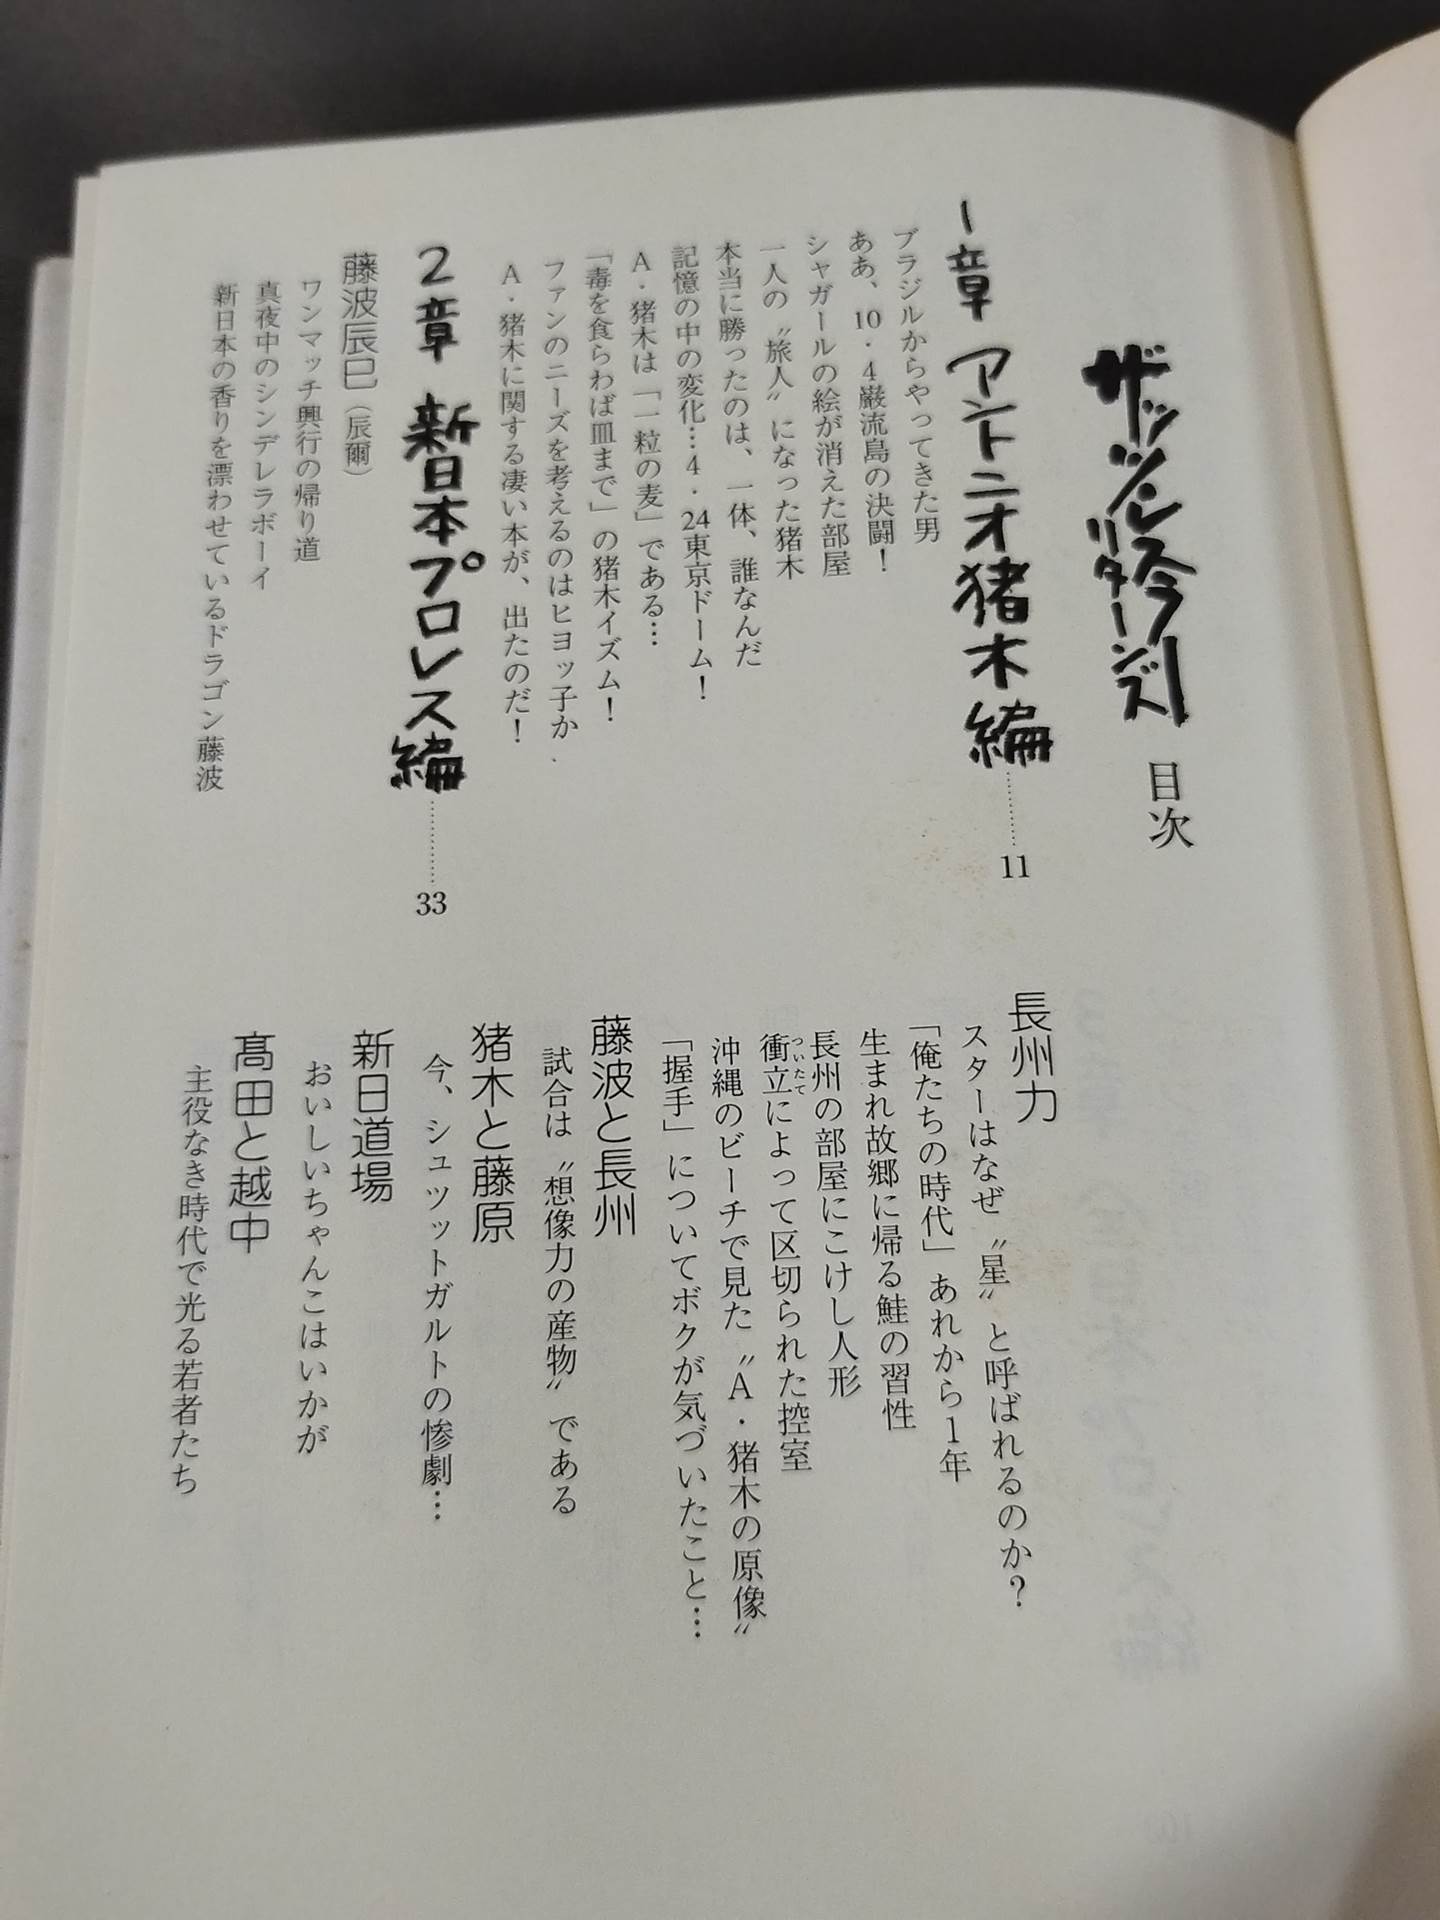 ザッツ・レスラー
リターンズ
目次
1章 アントニオ猪木編………11
ブラジルからやってきた男
ああ、10・4巌流島の決闘！
シャガールの絵が消えた部屋
一人の〝旅人〟になった猪木
本当に勝ったのは、一体、誰なんだ
記憶の中の変化…4・24東京ドーム！
A・猪木は「一粒の麦」である…
「毒を食らわば皿まで」の猪木イズム！
ファンのニーズを考えるのはヒヨッ子か
A・猪木に関する凄い本が、出たのだ！
2章 新日本プロレス編………33
藤波辰巳（辰爾）
ワンマッチ興行の帰り道
真夜中のシンデレラボーイ
新日本の香りを漂わせているドラゴン藤波
長州力
スターはなぜ〝星〟と呼ばれるのか？
「俺たちの時代」あれから1年
生まれ故郷に帰る鮭の習性
長州の部屋にこけし人形
衝立によって区切られた控室
ついたて
沖縄のビーチで見た〝A・猪木の原像〟
「握手」についてボクが気づいたこと…
藤波と長州
試合は〝想像力の産物〟である
猪木と藤原
今、シュツットガルトの惨劇…
新日道場
おいしいちゃんこはいかが
髙田と越中
主役なき時代で光る若者たち